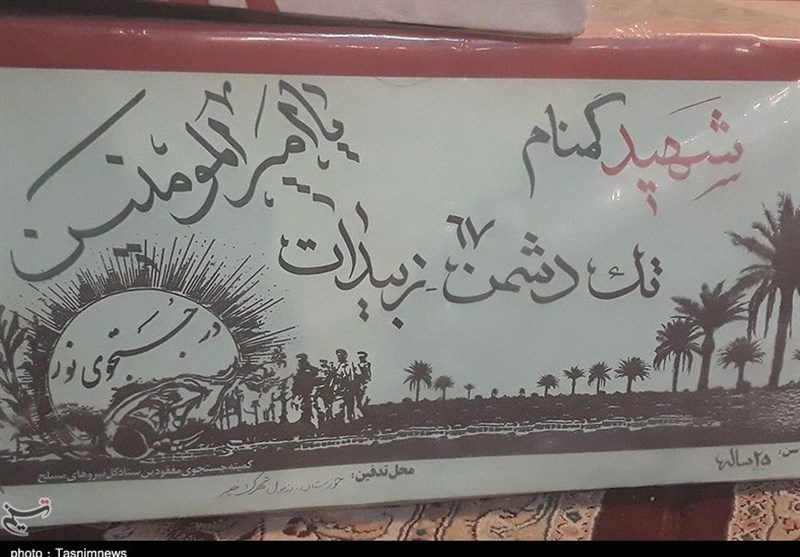 شهید گمنام
یا امیرالمومنین
تک دشمن ۶۷ زبیدات
در جستجوی نور
سن: ۲۵ ساله
محل تدفین: خوزستان، دزفول شهرک
کمیته جستجوی مفقودین ستاد کل نیروهای مسلح
تسنیم
photo : Tasnimnews